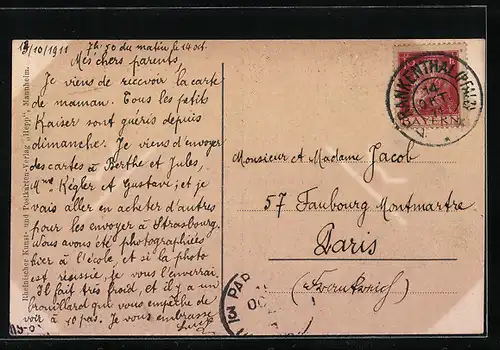 13/10/1911 7h 50 du matin, le 14 oct.
Mes chers parents,
Je viens de recevoir la carte
de maman. Tous les petits
Kaiser sont guéris depuis
dimanche. Je viens d'envoyer
des cartes à Berthe et Jules,
Mme Kégler et Gustave; et je
vais aller en acheter d'autres
pour les envoyer à Strasbourg.
Nous avons été photographiées
hier à l'école, et si la photo
est réussie, je vous l'enverrai.
Il fait très froid, et il y a un
brouillard qui vous empêche de
voir à 10 pas. Je vous embrasse
Rheinischer Kunst- und Postkarten-Verlag „Hepp", Mannheim.
FRANKENTHAL (PFALZ)
14 OKT
BAYERN
Monsieur et Madame Jacob
57 Faubourg Montmartre
Paris
(Frankreich)
PAR
3